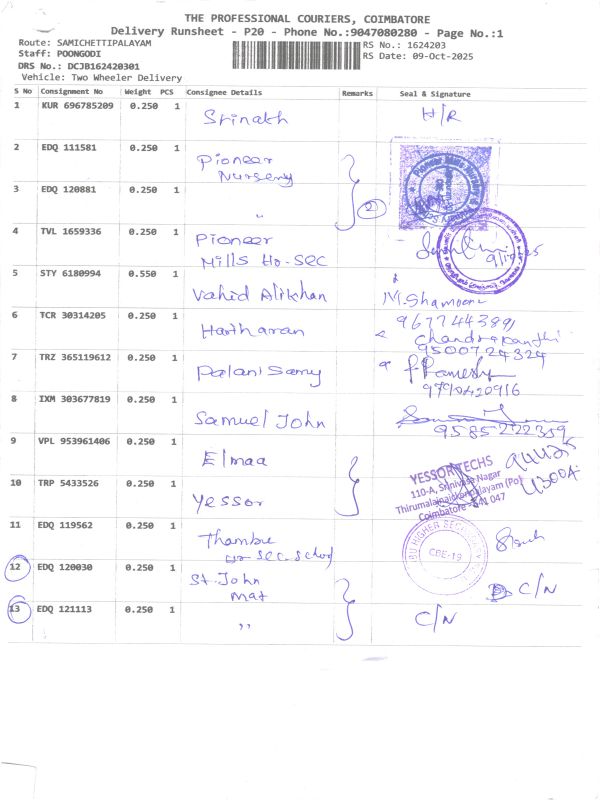 THE PROFESSIONAL COURIERS, COIMBATORE
Delivery Runsheet - P20 - Phone No.:9047080280 - Page No.:1
Route: SAMICHETTIPALAYAM
Staff: POONGODI
DRS No.: DCJB162420301
Vehicle: Two Wheeler Delivery
RS No.: 1624203
RS Date: 09-Oct-2025
S No Consignment No Weight PCS Consignee Details Remarks Seal & Signature
1 KUR 696785209 0.250 1 Srinath H/R
2 EDQ 111581 0.250 1 Pioneer
Nursery
3 EDQ 120881 0.250 1 " 2
4 TVL 1659336 0.250 1 Pioneer
Mills Hr-Sec
5 STY 6180994 0.550 1 Vahid Alikhan M. Shamoon
6 TCR 30314205 0.250 1 Hariharan 9677443891
Chandrakanthi
9500724324
7 TRZ 365119612 0.250 1 Palanisamy P. Ramesh
9790420916
8 IXM 303677819 0.250 1 Samuel John
9585222359
9 VPL 953961406 0.250 1 Elmaa
10 TRP 5433526 0.250 1 Yessor
YESSOR TECHS
110-A, Srinivasa Nagar
Thirumalainaickenpalayam (Po)
Coimbatore - 641 047
11 EDQ 119562 0.250 1 Thambu
hr sec. school
CBE-19
12 EDQ 120030 0.250 1 St. John
mat C/N
13 EDQ 121113 0.250 1 ,, C/N